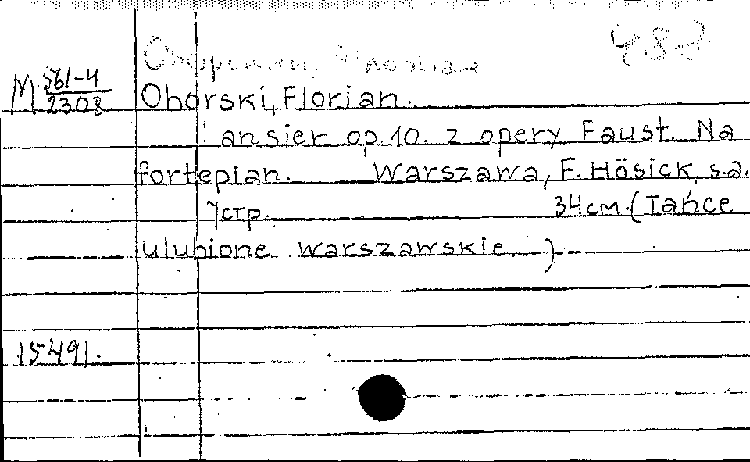 488
M 561-4
2308
Oborski, Florian.
Lansier op. 10. z opery Faust. Na
fortepian. Warszawa, F. Hösick, s.a.
7 стр. 34 см. (Tańce
ulubione warszawskie.)
15491.